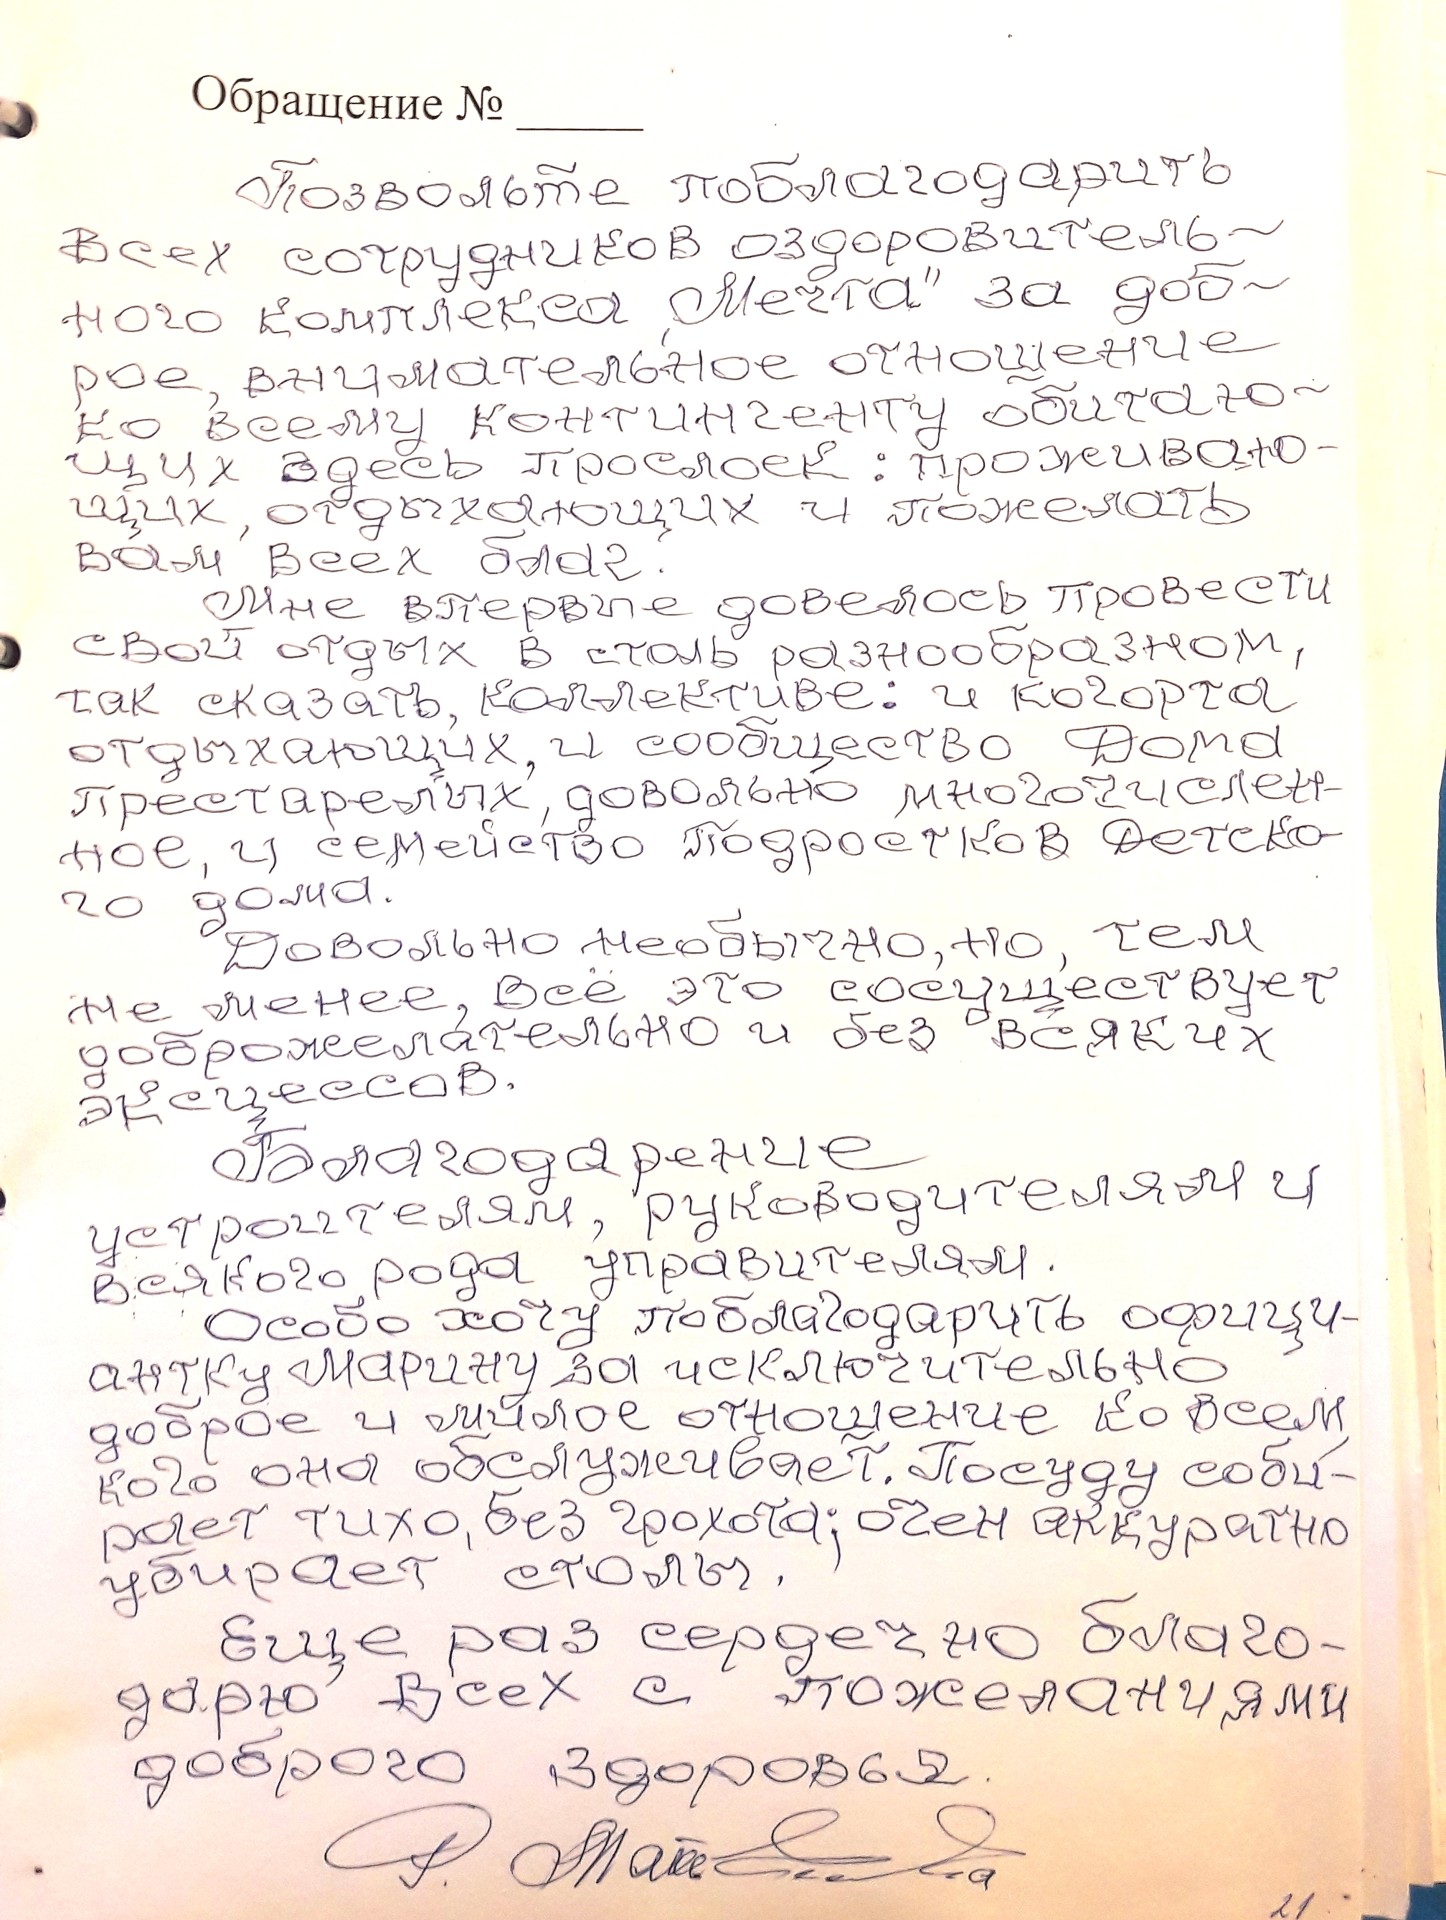 Обращение № _____
Позвольте поблагодарить
всех сотрудников оздоровитель-
ного комплекса „Мечта" за доб-
рое, внимательное отношение
ко всему контингенту обитаю-
щих здесь прослоек: проживаю-
щих, отдыхающих и пожелать
вам всех благ.
Мне впервые довелось провести
свой отдых в столь разнообразном,
так сказать, коллективе: и когорта
отдыхающих, и сообщество Дома
престарелых, довольно многочислен-
ное, и семейство подростков Детско-
го дома.
Довольно необычно, но, тем
не менее, всё это сосуществует
доброжелательно и без всяких
эксцессов.
Благодарение
устроителям, руководителям и
всякого рода управителям.
Особо хочу поблагодарить официи-
антку Марину за исключительно
доброе и милое отношение ко всем,
кого она обслуживает. Посуду соби-
рает тихо, без грохота; очен аккуратно
убирает столы.
Еще раз сердечно благо-
дарю всех с пожеланиями
доброго здоровья.
Р.
21